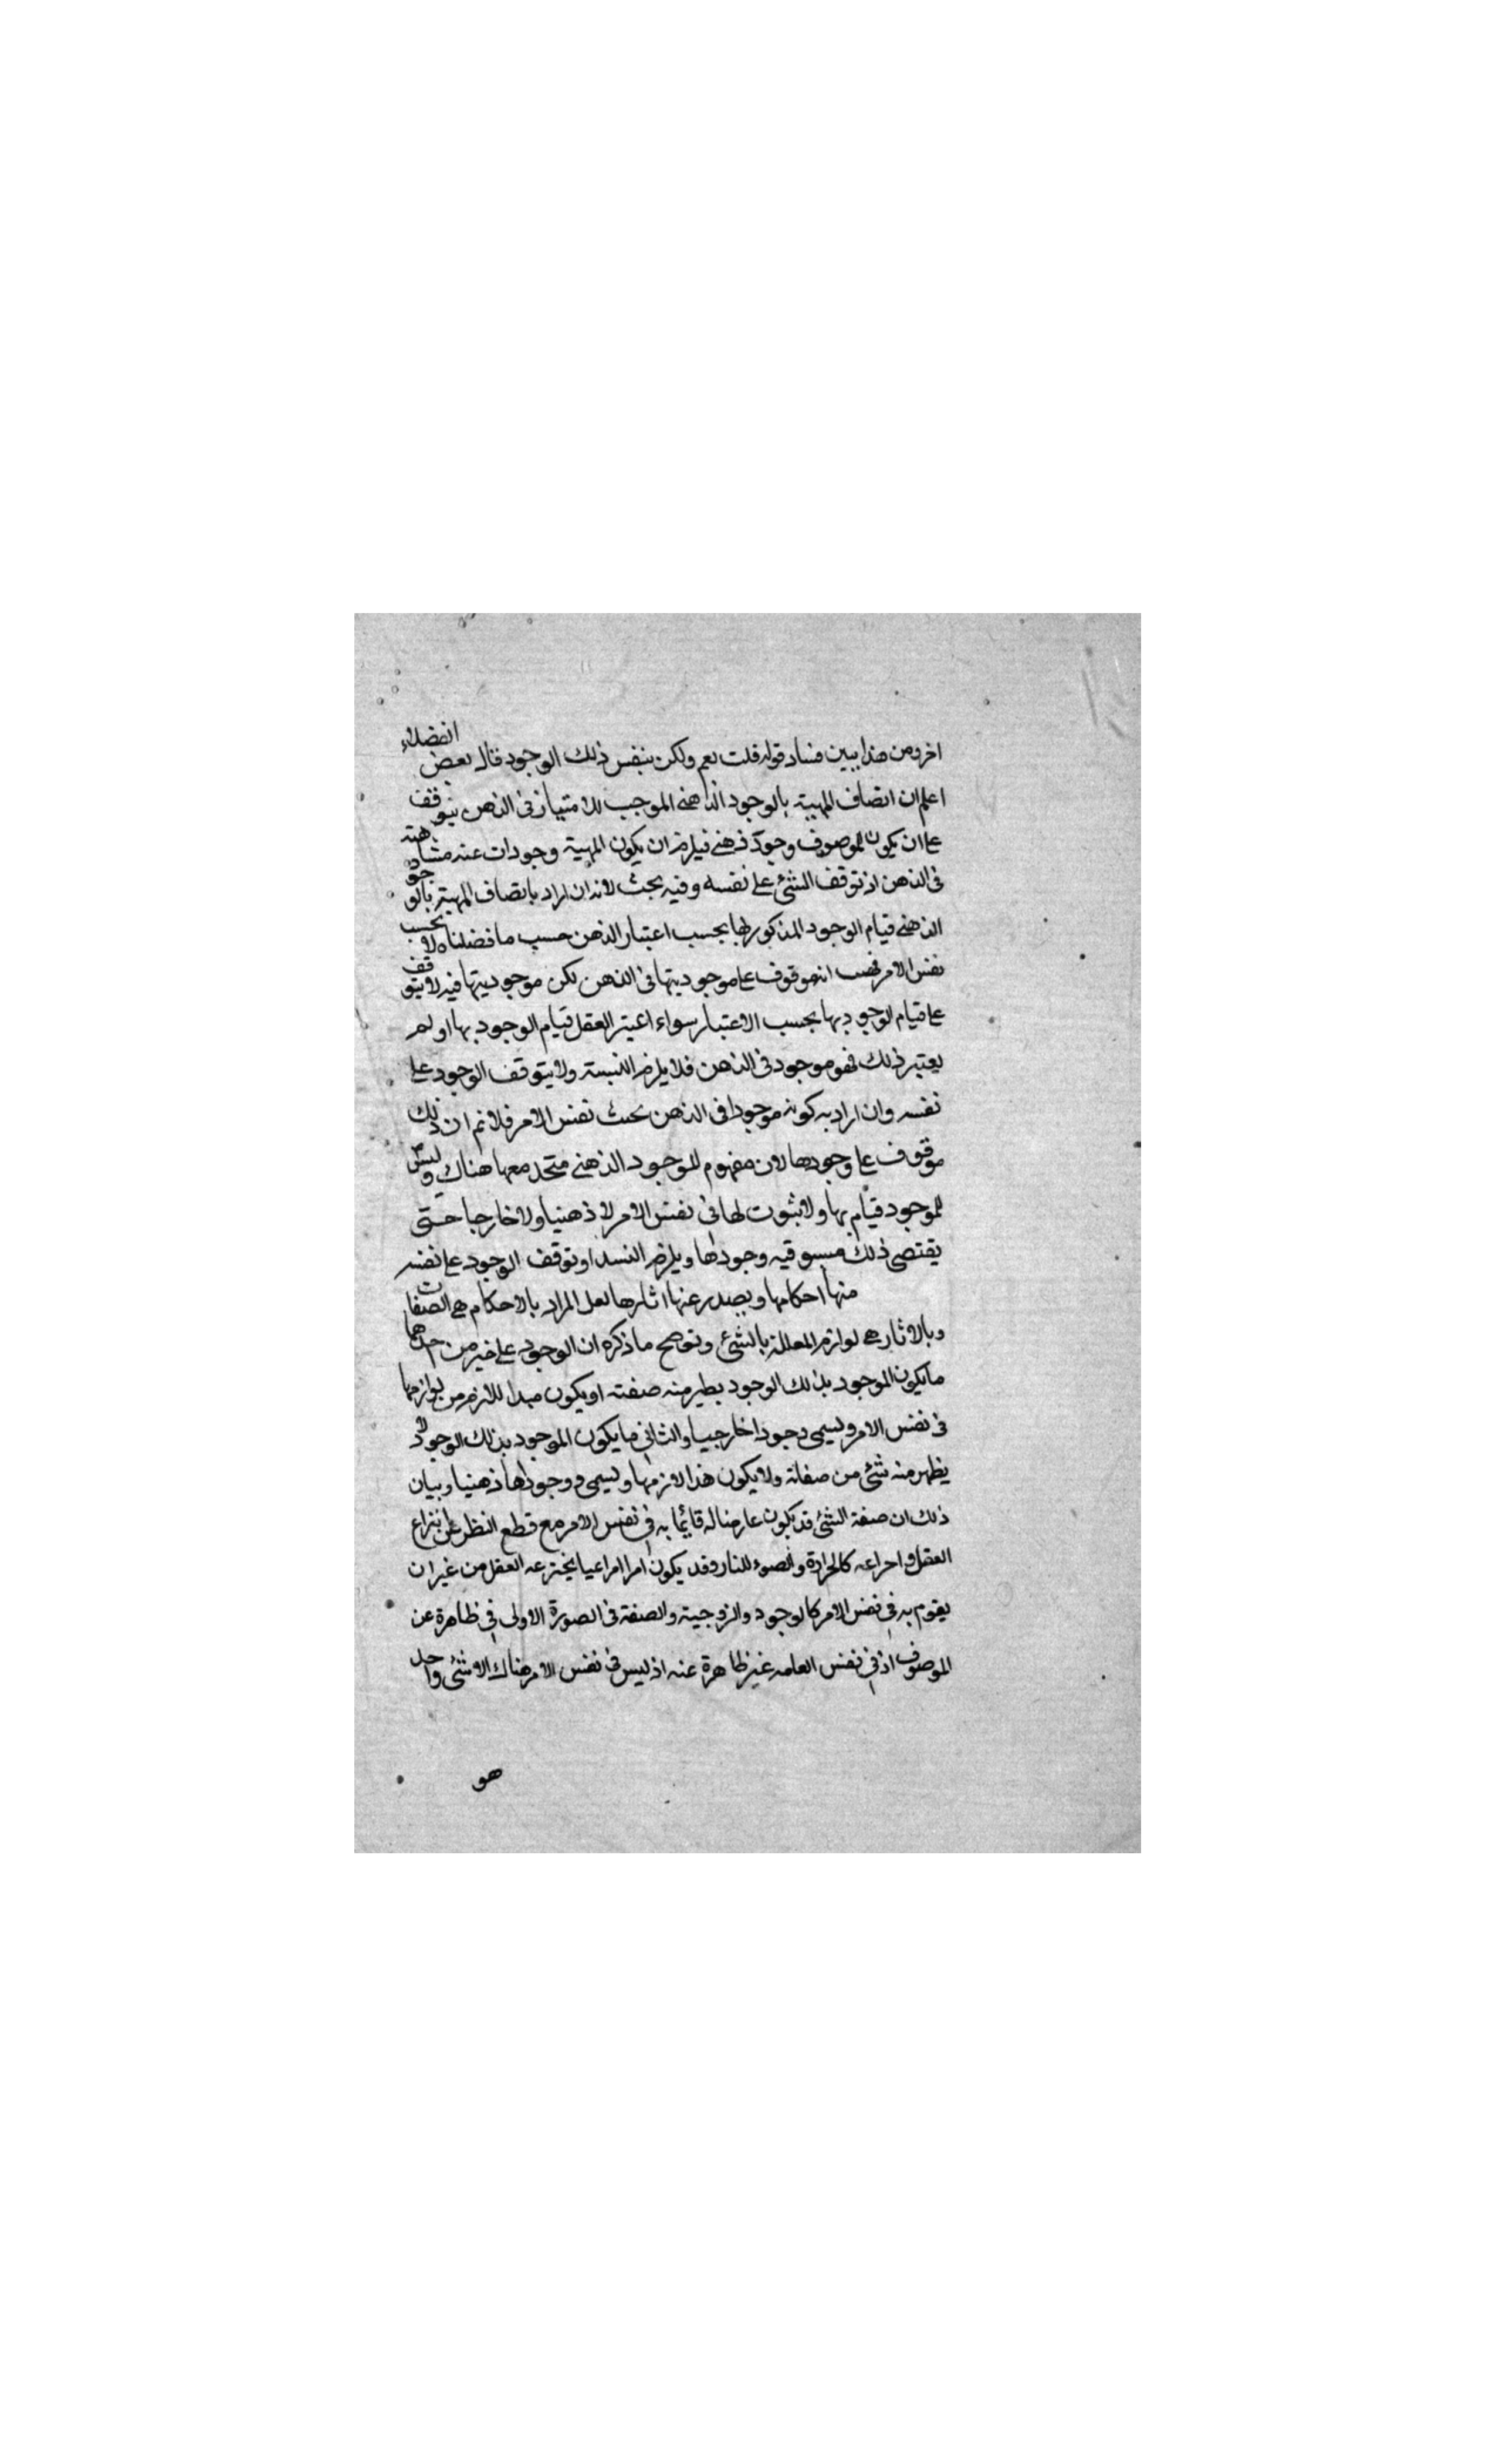 اخر ومن هذا يبين فساد قوله قلت نعم ولكن بنفس ذلك الوجود قال بعض الفضلاء
اعلم ان اتصاف المهية بالوجود الذهني الموجب للامتياز في الذهن يتوقف
على ان يكون للموصوف وجود ذهني فيلزم ان يكون المهية وجودات عنه متناهية
في الذهن اذ توقف الشئ على نفسه وفيه بحث لانه ان اراد باتصاف المهية بالوجو
الذهني قيام الوجود المذكور لها بحسب اعتبار الذهن حسب ما فضلناه لا بحسب
نفس الامر فحسب انه موقوف على موجوديتها في الذهن لكن موجوديتها فيه لا يتوقف
على قيام الوجود بها بحسب الاعتبار سواء اعتبر العقل قيام الوجود بها او لم
يعتبر ذلك فهو موجود في الذهن فلا يلزم النسبة ولا يتوقف الوجود على
نفسه وان اراد به كونه موجودا في الذهن بحث نفس الامر فلانم ان ذلك
موقوف على وجودها لان مفهوم الموجود الذهني متحد معها هناك وليس
للموجود قيام بها ولا ثبوت لها في نفس الامر لا ذهنيا ولا خارجيا حتى
يقتضي ذلك مسبوقيه وجودها ويلزم النسد او توقف الوجود على نفسه
منها احكامها ويصدر عنها اثارها لعل المراد بالاحكام هي الصفات
وبالاثار هي لوازم المعللة بالشئ وتوضح ما ذكره ان الوجود على ضربين احدهما
ما يكون الموجود بذلك الوجود يظهر منه صفته او يكون مبدا للازم من لوازمها
في نفس الامر ويسمى وجودا خارجيا والثاني ما يكون الموجود بذلك الوجود لا
يظهر منه شئ من صفاته ولا يكون هذا لازمها ويسمى ووجودها ذهنيا وبيان
ذلك ان صفة الشئ قد يكون عارضا له قائما به في نفس الامر مع قطع النظر عن انتزاع
العقل واختراعه كالحرارة والضوء للنار وقد يكون امرا يخترعه العقل من غير ان
يقوم به في نفس الامر كالوجود والزوجية والصفة في الصورة الاولى في ظاهرة عن
الموصوف اذ في نفس غير ظاهرة عنه اذ ليس في نفس الامر هناك الا شئ واحد
هو